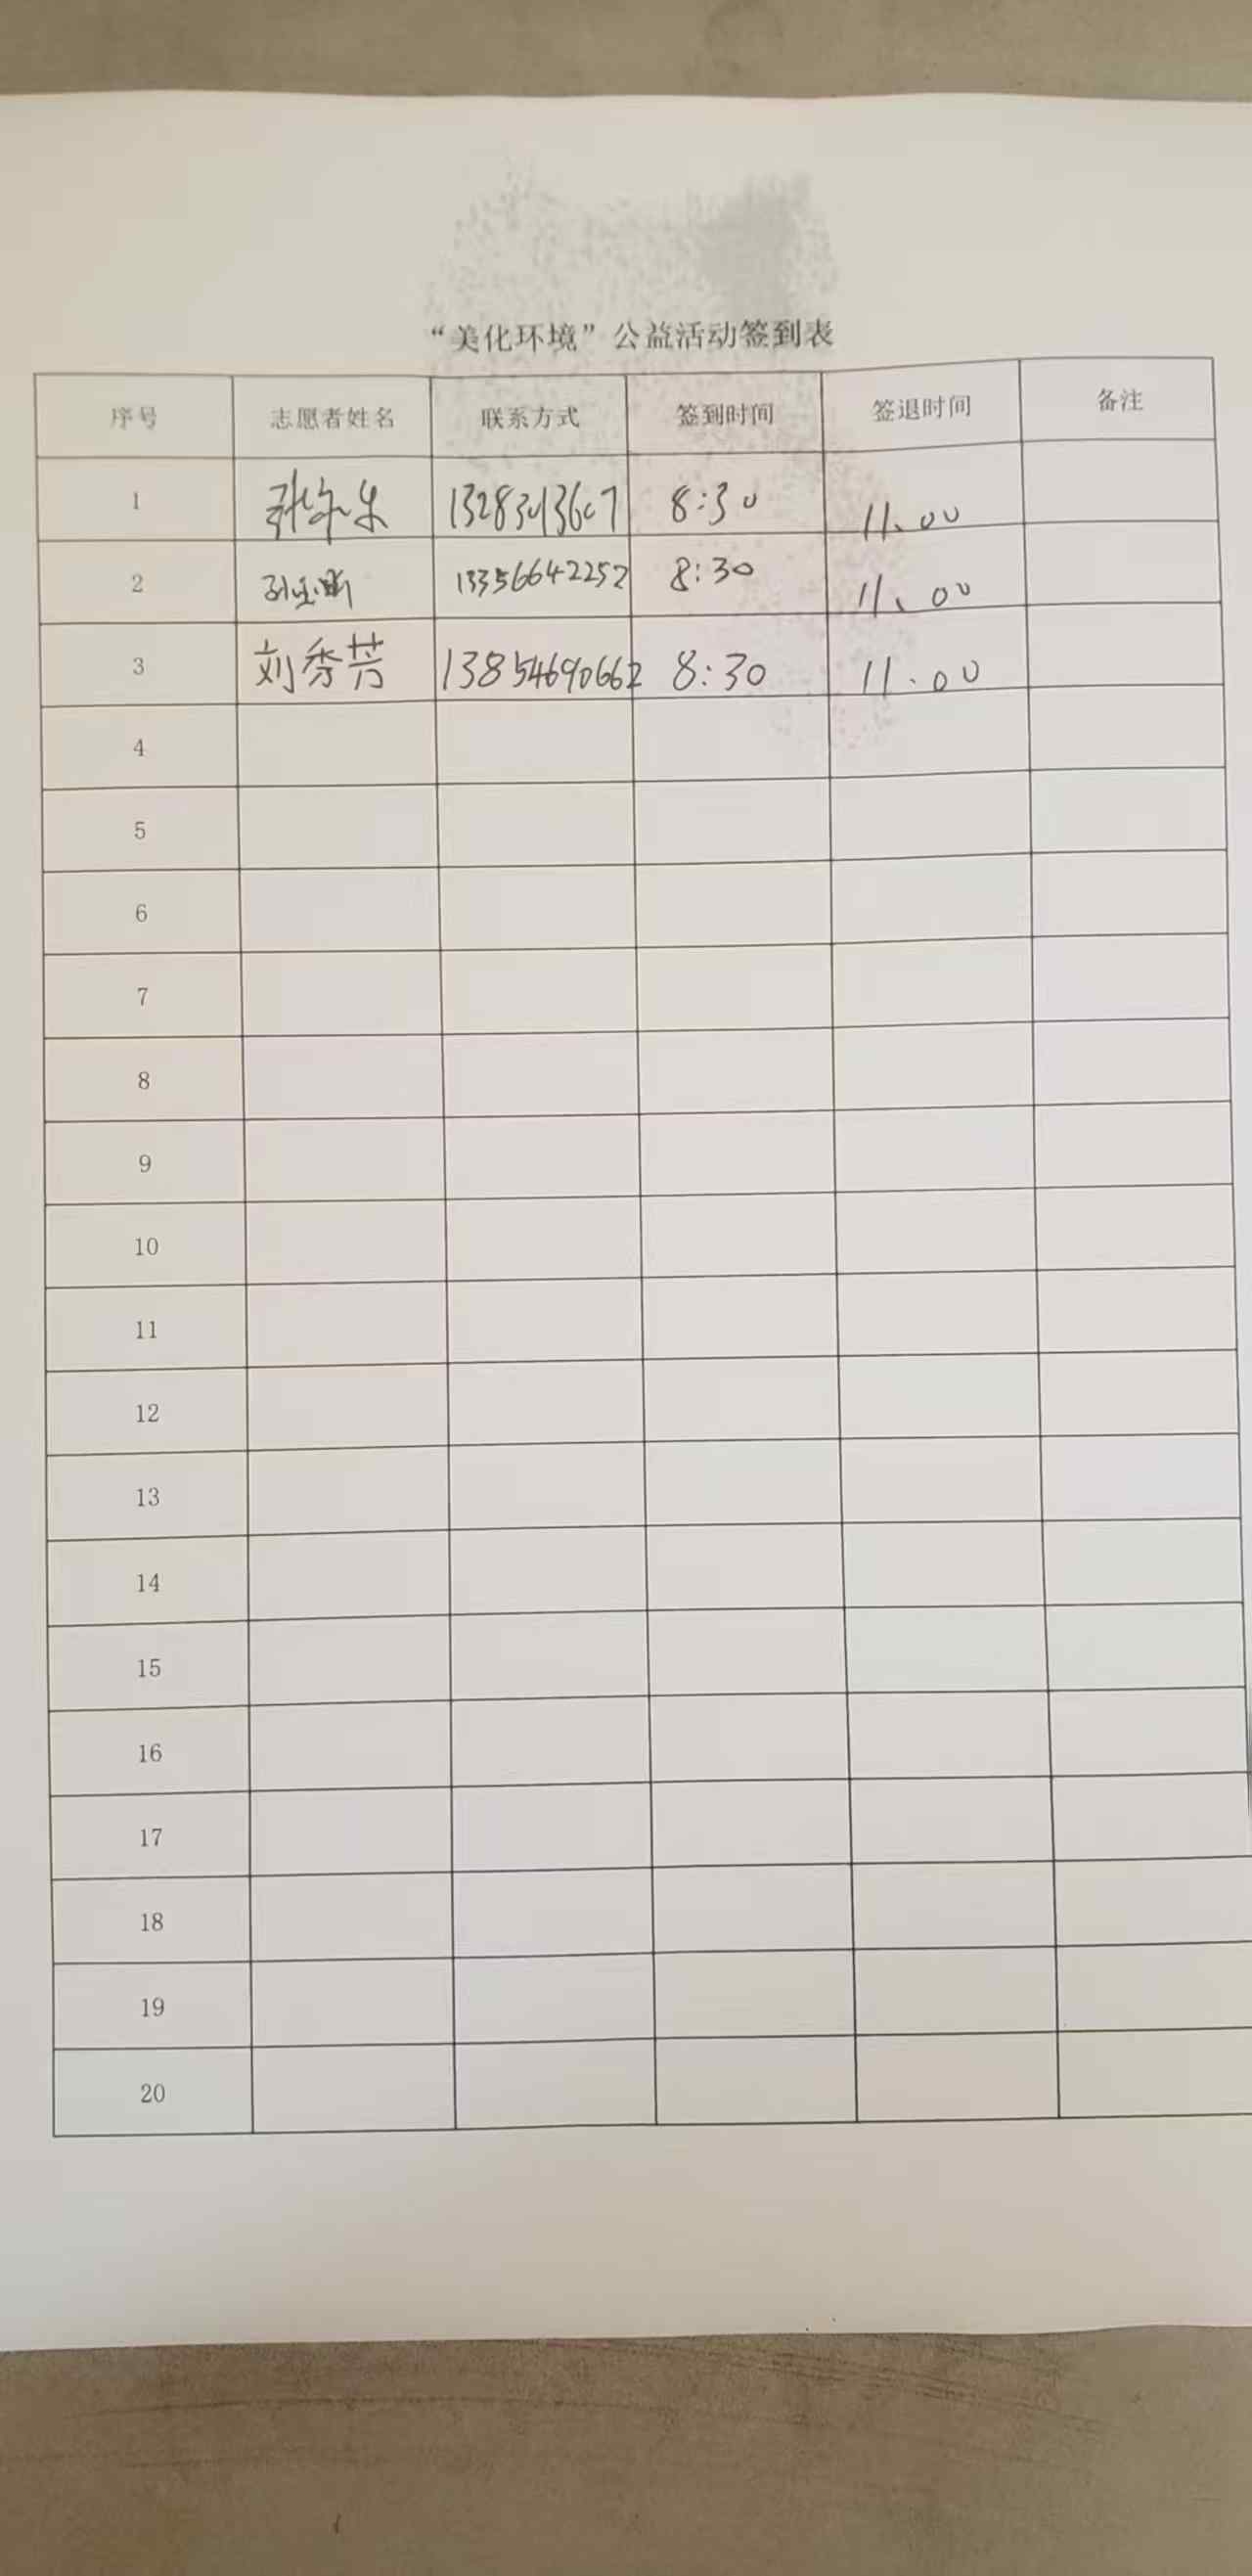 “美化环境”公益活动签到表
序号 志愿者姓名 联系方式 签到时间 签退时间 备注
1 8:30 11.00
2 13356642252 8:30 11.00
3 刘秀芳 13854690662 8:30 11.00
4
5
6
7
8
9
10
11
12
13
14
15
16
17
18
19
20